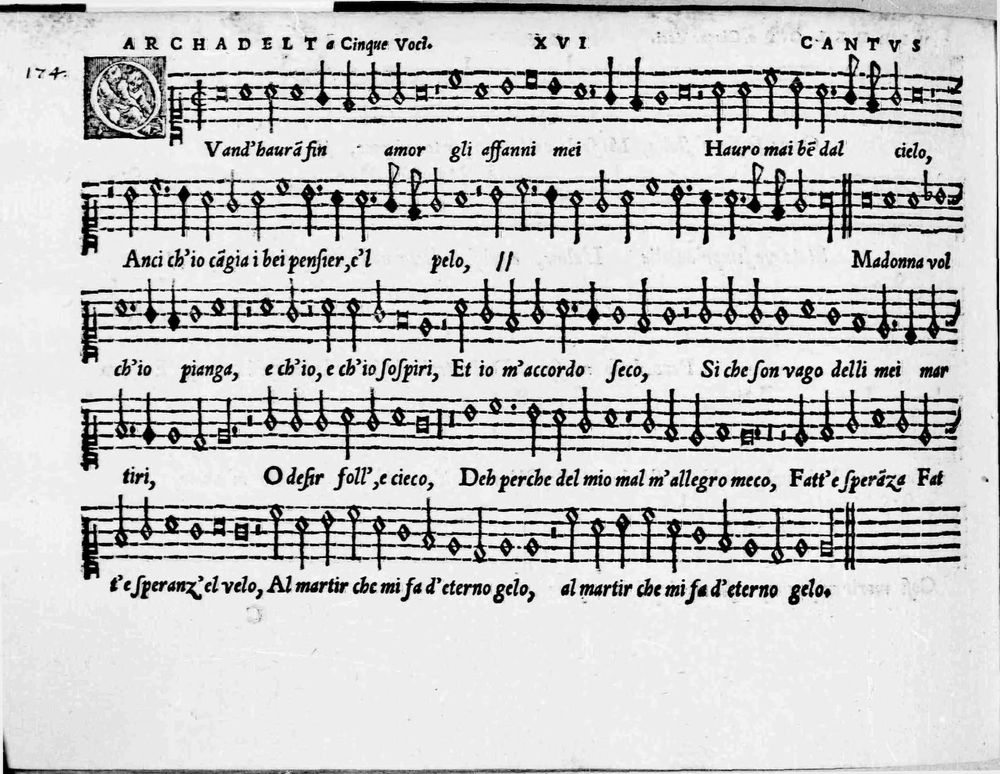 ARCHADELT a Cinque Voci. XVI CANTVS
174.
QVand'haurā fin amor gli affanni mei Hauro mai bē dal cielo,
Anci ch'io cāgia i bei pensier, e'l pelo, // Madonna vol
ch'io pianga, e ch'io, e ch'io sospiri, Et io m'accordo seco, Si che son vago delli mei mar
tiri, O desir foll', e cieco, Deh perche del mio mal m'allegro meco, Fatt'e sperāza Fat
t'e speranz'el velo, Al martir che mi fa d'eterno gelo, al martir che mi fa d'eterno gelo.